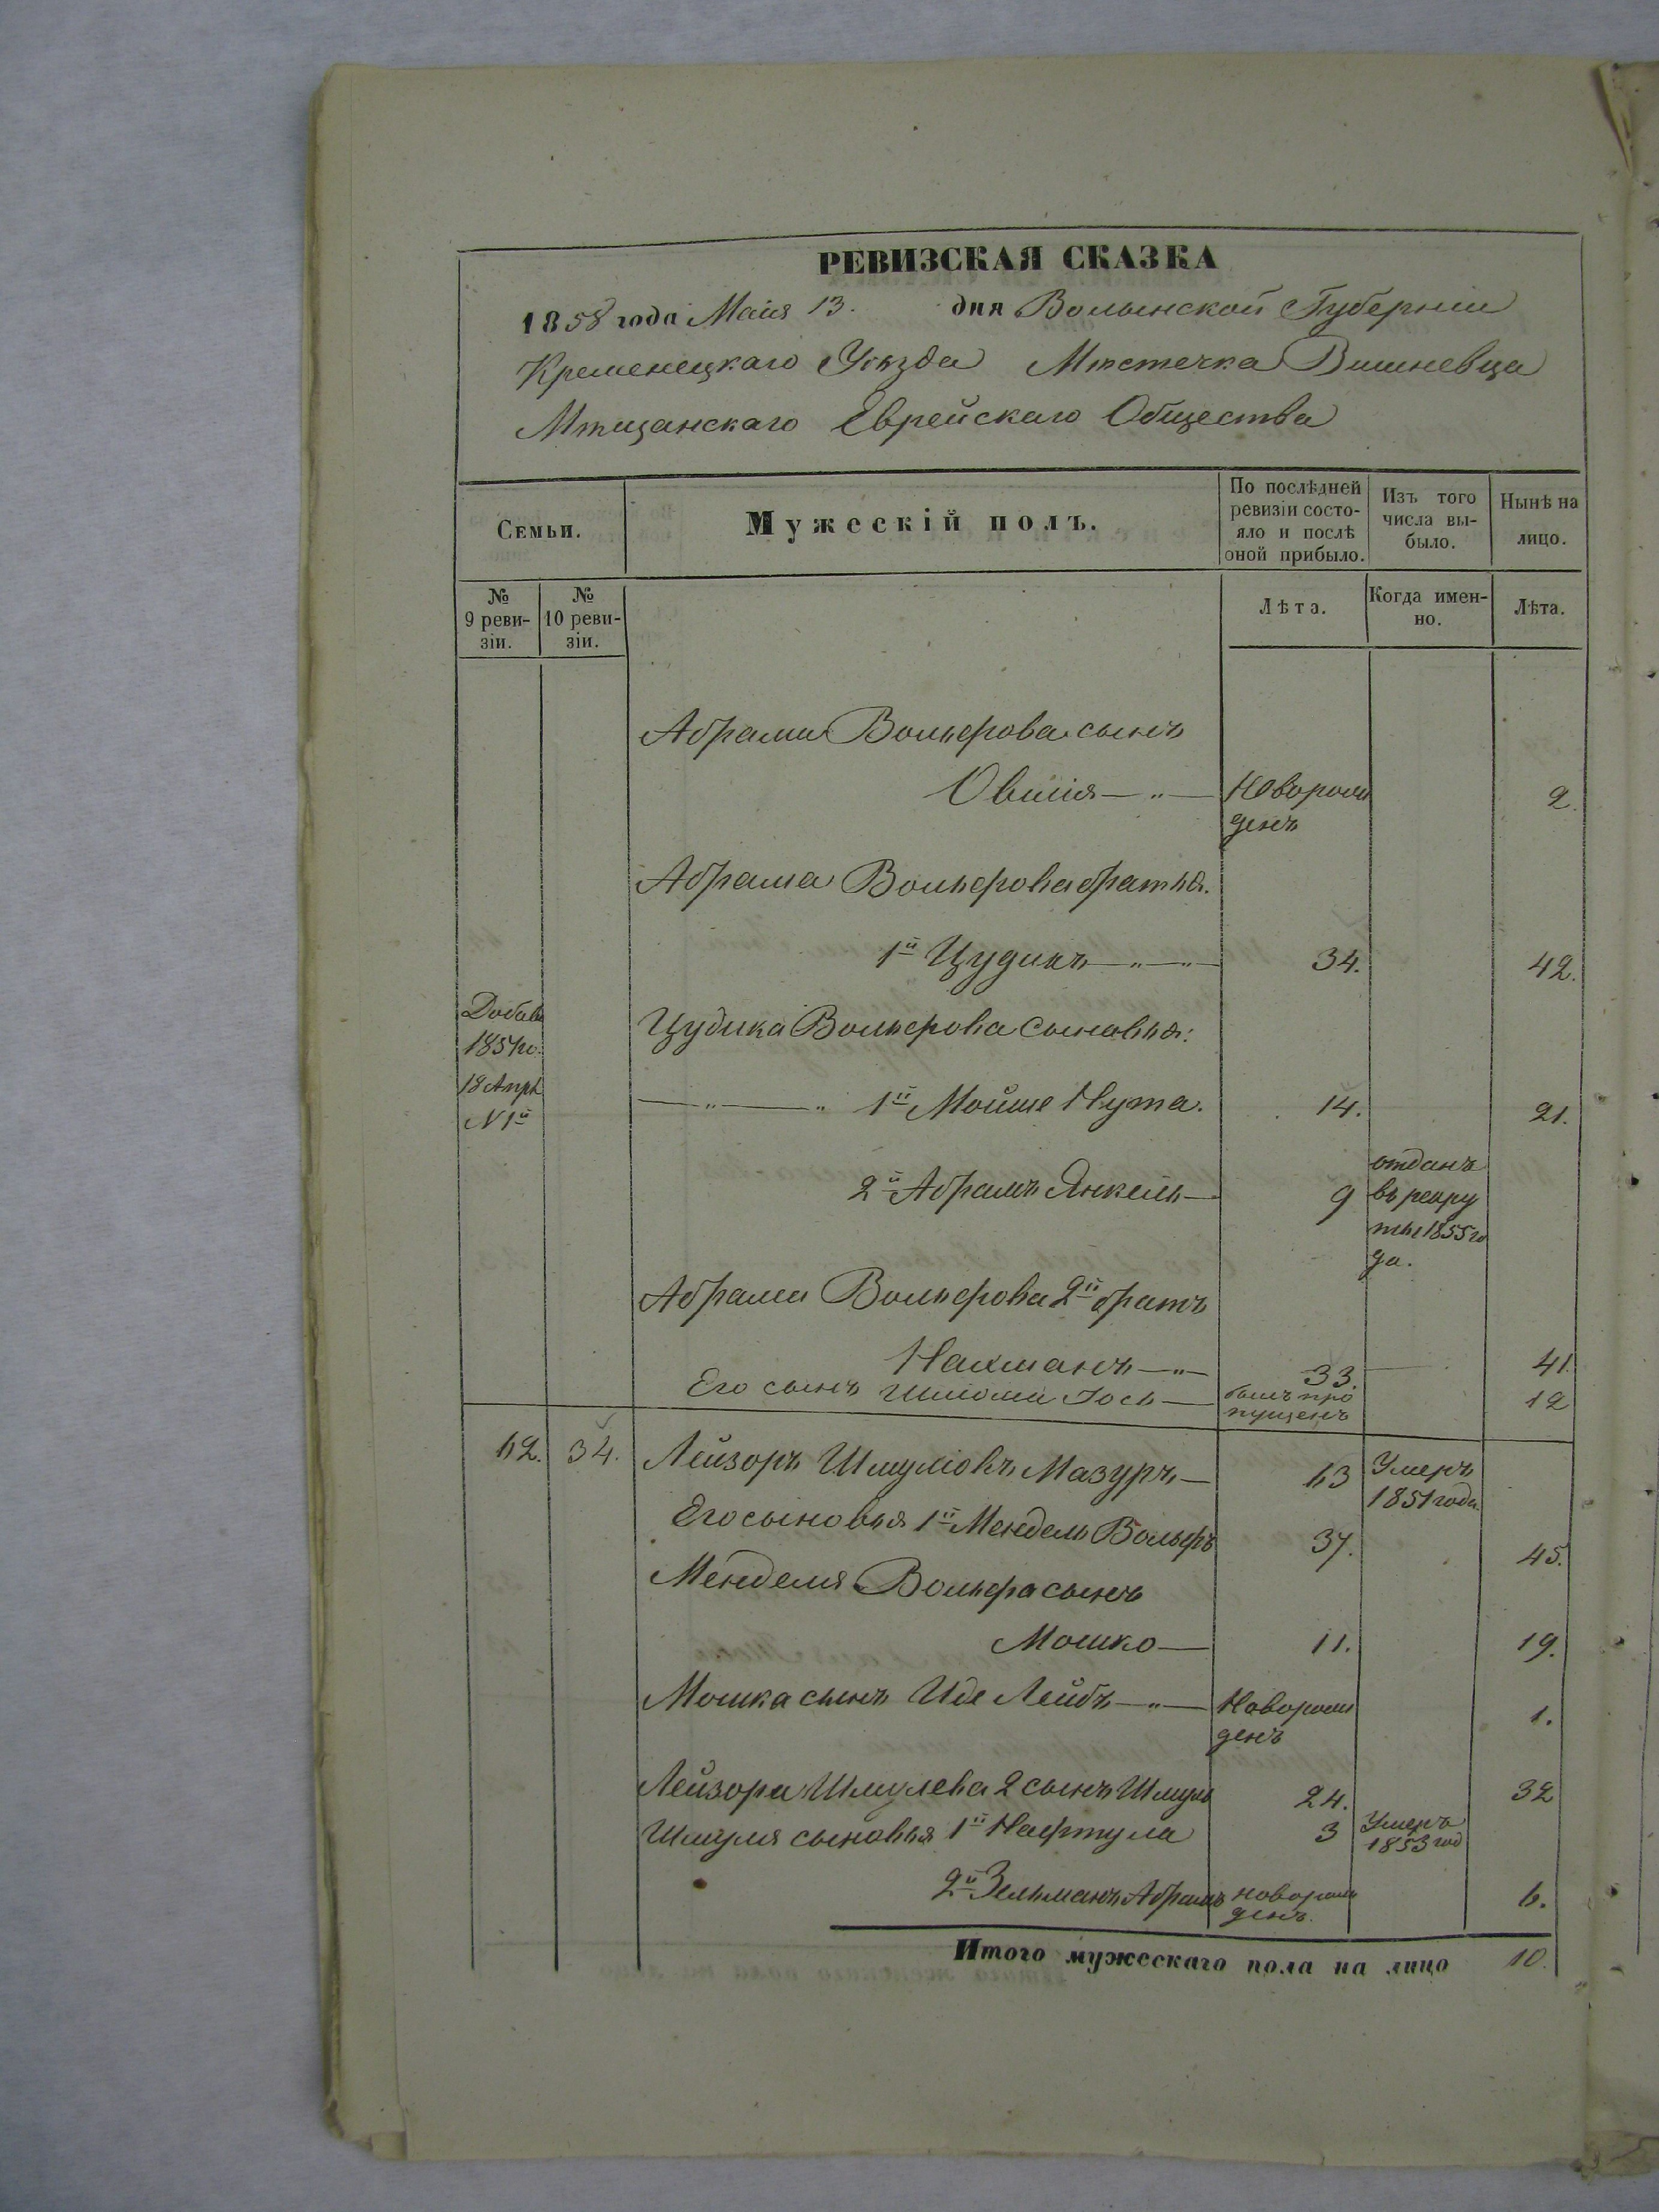 РЕВИЗСКАЯ СКАЗКА
1858 года Маія 13. дня Волынской Губерніи
Кременецкаго Уѣзда Мѣстечка Вишневца
Мѣщанскаго Еврейскаго Общества
Семьи.
Мужескій полъ.
По послѣдней ревизіи состо-
яло и послѣ оной прибыло.
Изъ того числа вы-
было.
Нынѣ на лицо.
№ 9 реви-
зіи.
№ 10 реви-
зіи.
Лѣта.
Когда имен-
но.
Лѣта.
Абрама Вольфова сынъ
Овшія — " — Новорож 2.
денъ
Абрама Вольфова братья.
1й Цудикъ — " — " — 34. 42.
Добав
Цудика Вольфова сыновья:
18 Апрѣ
№ 1й
— " — " 1й Мойше Нута. 14. 21.
2й Абрамъ Янкель — 9
отданъ
въ рекру
ты 1855 го
да.
Абрама Вольфова 2й братъ
Нахманъ — " — 33. 41.
Его сынъ Шлома Іось — былъ про 12
пущенъ
62. 34. Лейзоръ Шмуліовъ Мазуръ — 63 Умеръ
1851 года.
Его сыновья 1й Мендель Вольфъ 37. 45.
Менделя Вольфа сынъ
Мошко — 11. 19.
Мошка сынъ Иде Лейбъ — " — Новорож 1.
денъ
Лейзора Шмулева 2 сынъ Шмуль 24. 32
Шмуля сыновья 1й Нафтула 3 Умеръ
1853 год
2й Зельманъ Абрамъ новорож 6.
денъ.
Итого мужескаго пола на лицо 10.